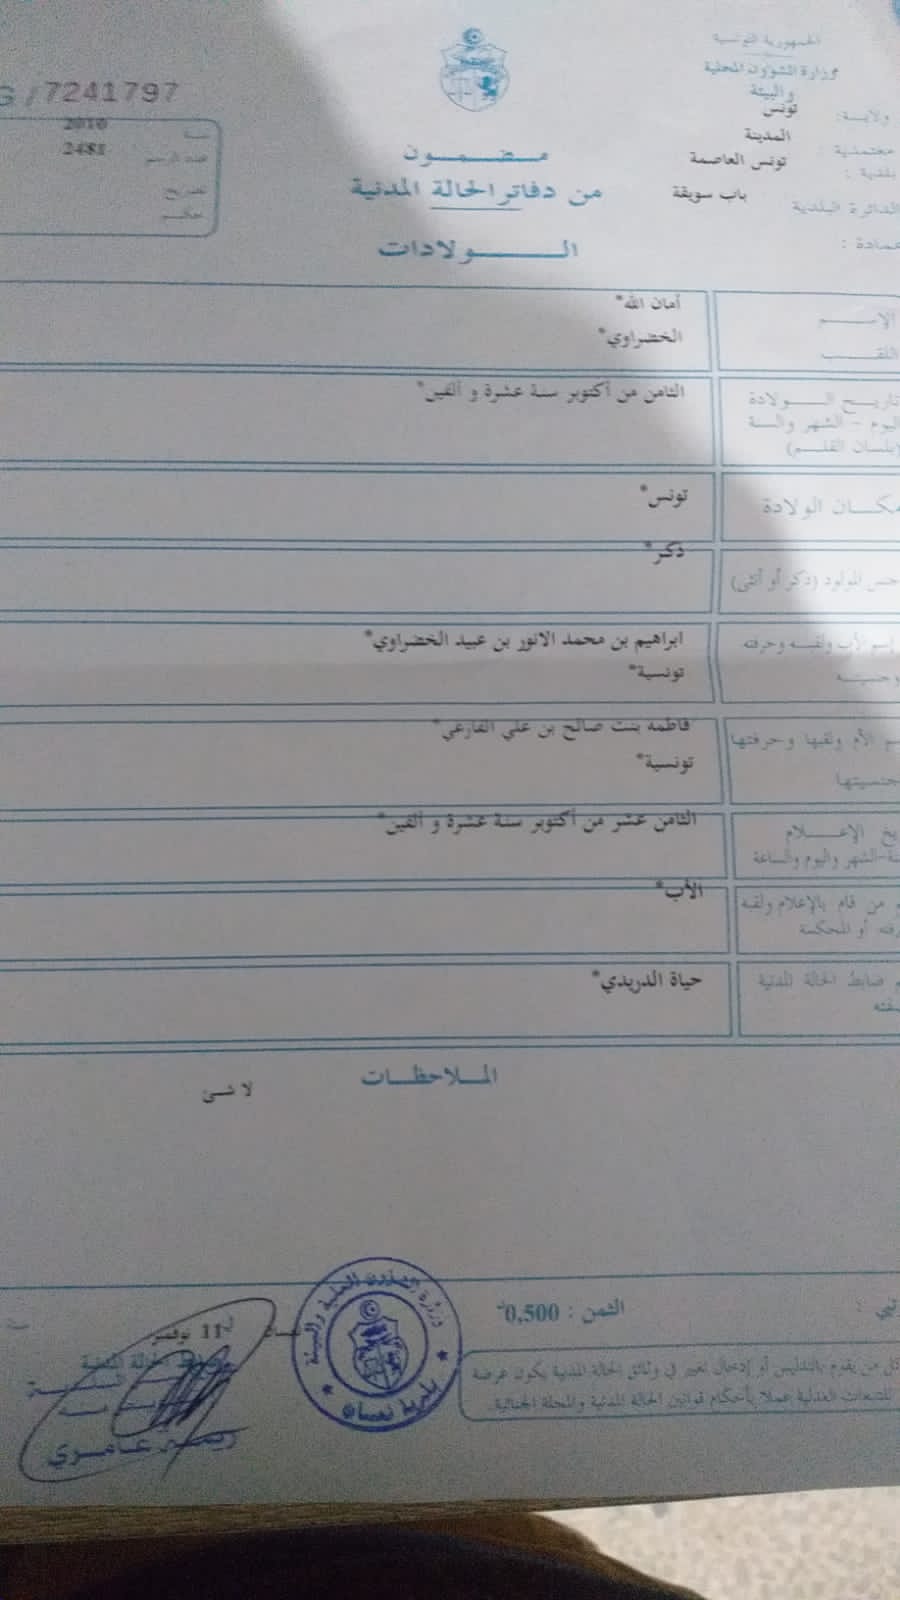 الجمهورية التونسية
وزارة الشؤون المحلية
والبيئة
ولاية: تونس
معتمدية : المدينة
بلدية : تونس العاصمة
الدائرة البلدية باب سويقة
عمادة :
G /7241797
سنة 2010
عدد الرسم 2481
تصريح
حكم
مضمون
من دفاتر الحالة المدنية
الولادات
الإسم أمان الله*
اللقب الخضراوي*
تاريخ الولادة الثامن من أكتوبر سنة عشرة و ألفين*
اليوم - الشهر والسنة
(بلسان القلم)
مكان الولادة تونس*
جنس المولود (ذكر أو أنثى) ذكر*
إسم الأب ولقبه وحرفته ابراهيم بن محمد الانور بن عبيد الخضراوي*
وجنسيته تونسية*
الأم ولقبها وحرفتها فاطمه بنت صالح بن علي القازعي*
جنسيتها تونسية*
الإعلام الثامن عشر من أكتوبر سنة عشرة و ألفين*
الشهر واليوم والساعة
من قام بالإعلام ولقبه الأب*
أو المحكمة
ضابط الحالة المدنية حياة الدريدي*
الملاحظات
لا شئ
الثمن : 0,500د
11 نوفمبر
ضابط الحالة المدنية
عامري
وزارة الشؤون المحلية والبيئة
كل من يقوم بالتدليس أو إدخال تغيير في وثائق الحالة المدنية يكون عرضة
للتتبعات العدلية عملا بأحكام قوانين الحالة المدنية والمجلة الجنائية.